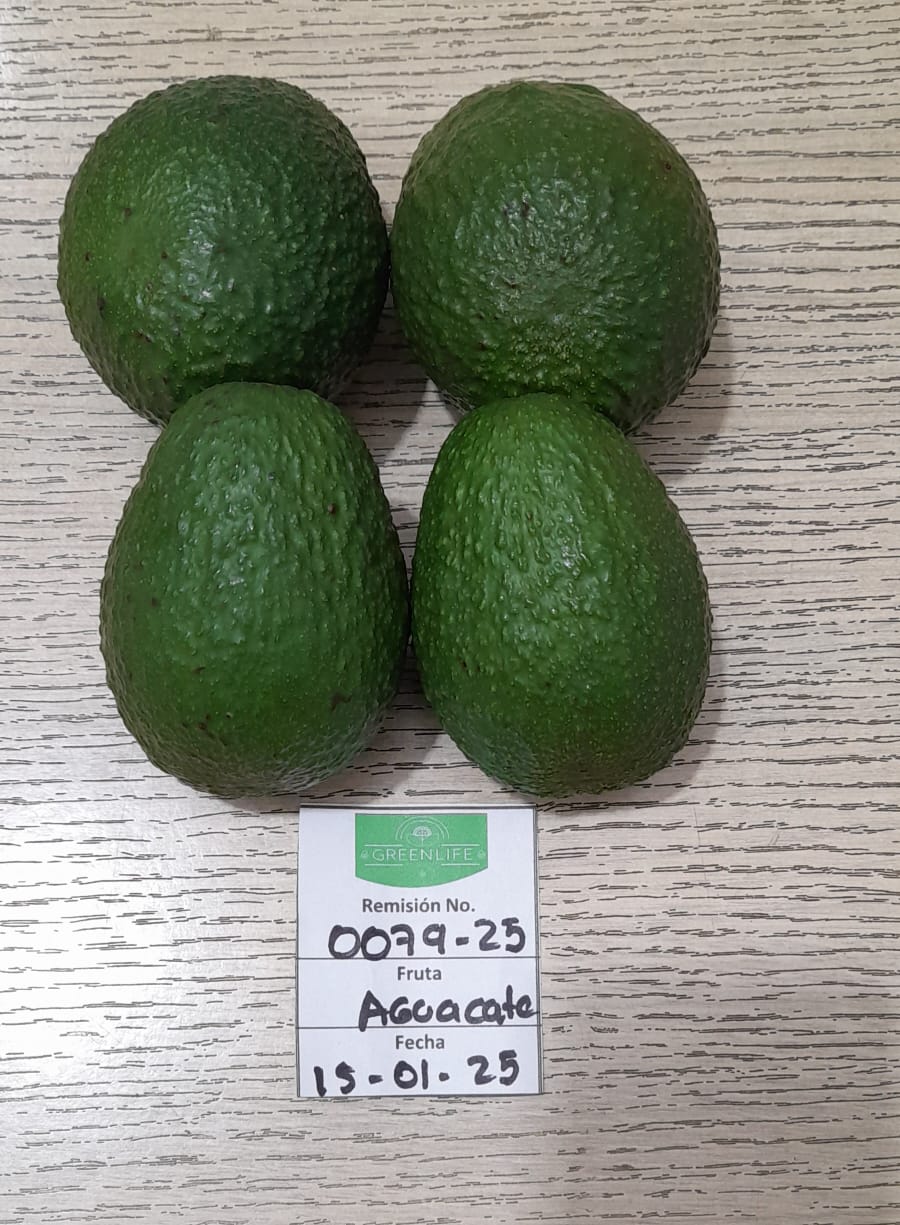 GREENLIFE
Remisión No.
0079-25
Fruta
AGUacate
Fecha
15-01-25